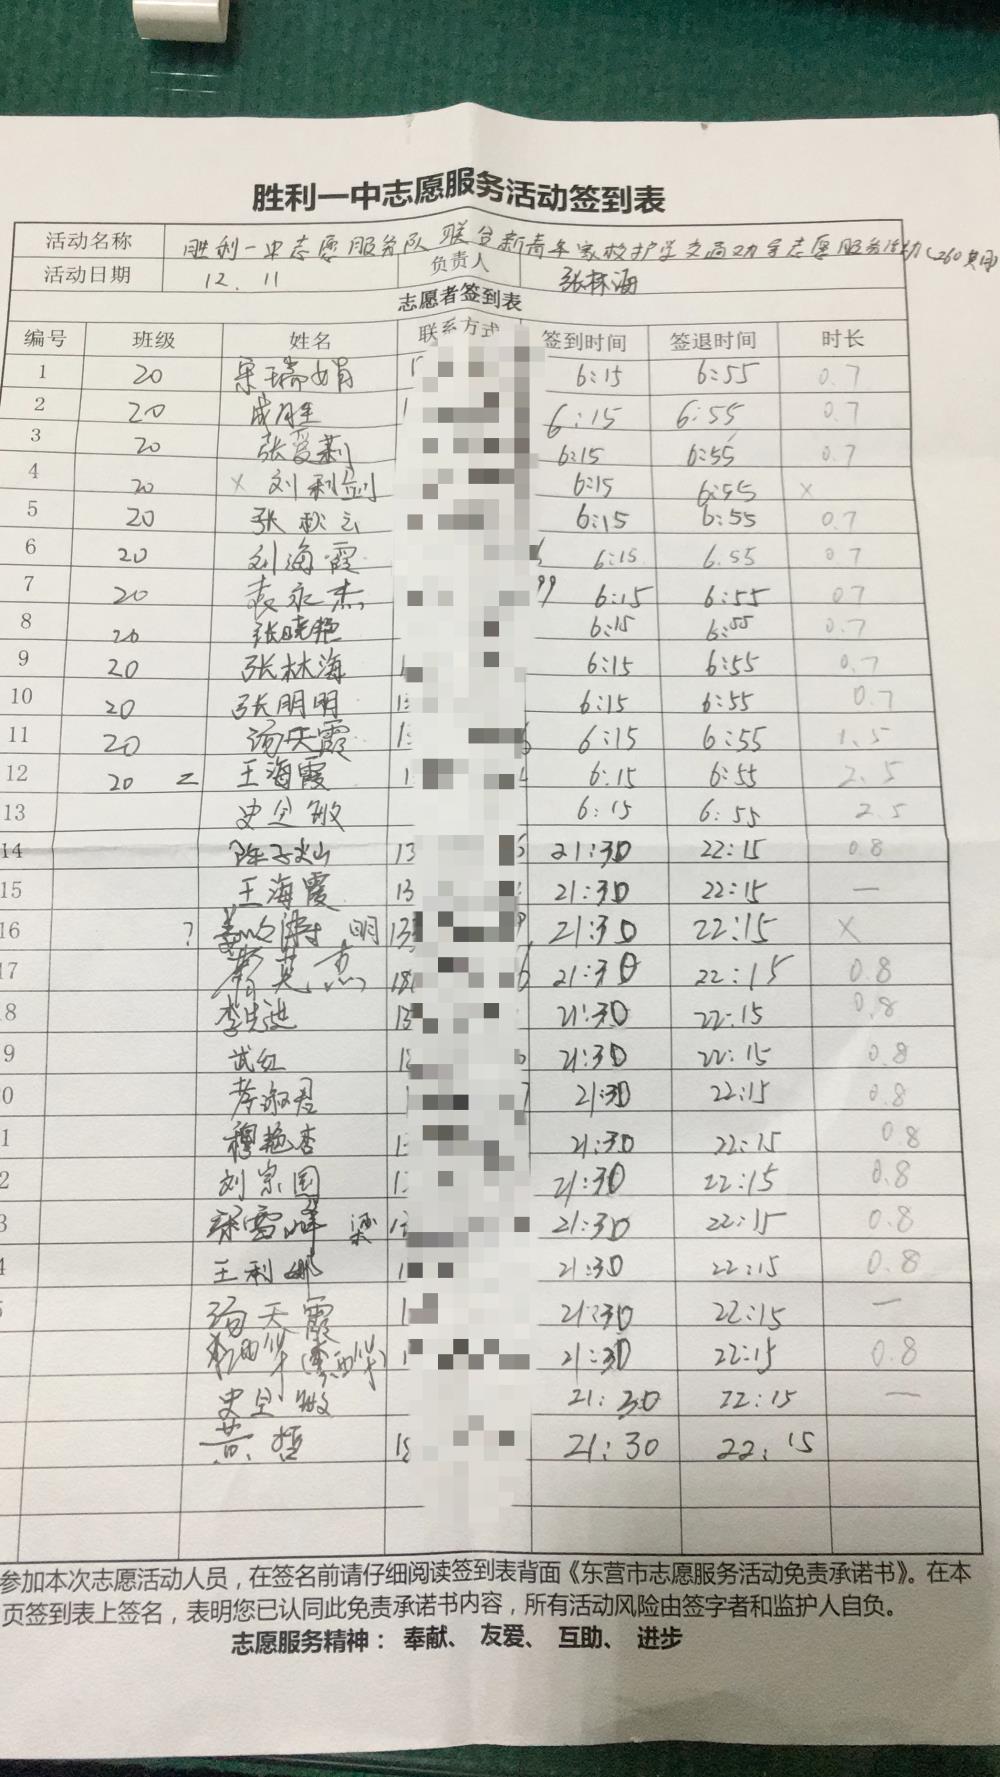 胜利一中志愿服务活动签到表
活动名称 胜利一中志愿服务队联合新青年家校护学交通劝导志愿服务活动(260
活动日期 12.11 负责人 张林海
志愿者签到表
编号 班级 姓名 联系方式 签到时间 签退时间 时长
1 20 宋瑞娟 6:15 6:55 0.7
2 20 成胜 6:15 6:55 0.7
3 20 张爱莉 6:15 6:55 0.7
4 20 × 刘利剑 6:15 6:55 ×
5 20 张秋云 6:15 6:55 0.7
6 20 刘海霞 6:15 6.55 0.7
7 20 袁永杰 99 6:15 6:55 0.7
8 20 张晓艳 6:15 6:55 0.7
9 20 张林海 1 6:15 6:55 0.7
10 20 张明明 13 6:15 6:55 0.7
11 20 汤天霞 6:15 6:55 1.5
12 20 王海霞 1 6:15 6:55 2.5
13 史全敏 6:15 6:55 2.5
14 陈子山 13 21:30 22:15 0.8
15 王海霞 13 21:30 22:15 —
16 ? 姜 明 13 21:30 22:15 ×
17 英杰 18 6 21:30 22:15 0.8
8 李先进 13 21:30 22:15 0.8
9 武红 21:30 22:15 0.8
0 李淑君 21:30 22:15 0.8
1 穆艳杏 21:30 22:15 0.8
2 刘宗国 21:30 22:15 0.8
3 雪峰 梁 21:30 22:15 0.8
4 王利娜 21:30 22:15 0.8
汤天霞 21:30 22:15 —
21:30 22:15 0.8
史全敏 21:30 22:15 —
黄哲 21:30 22:15
参加本次志愿活动人员，在签名前请仔细阅读签到表背面《东营市志愿服务活动免责承诺书》。在本
页签到表上签名，表明您已认同此免责承诺书内容，所有活动风险由签字者和监护人自负。
志愿服务精神：奉献、友爱、互助、进步